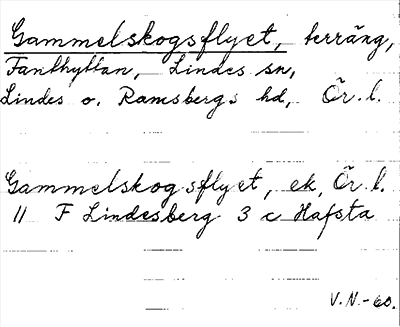 Gammelskogsflyet, terräng,
Fanthyttan, Lindes sn,
Lindes o. Ramsbergs hd, Ör. l.
Gammelskogsflyet, ek, Ör. l.
11 F Lindesberg 3 c Hafsta
V.N.-60.